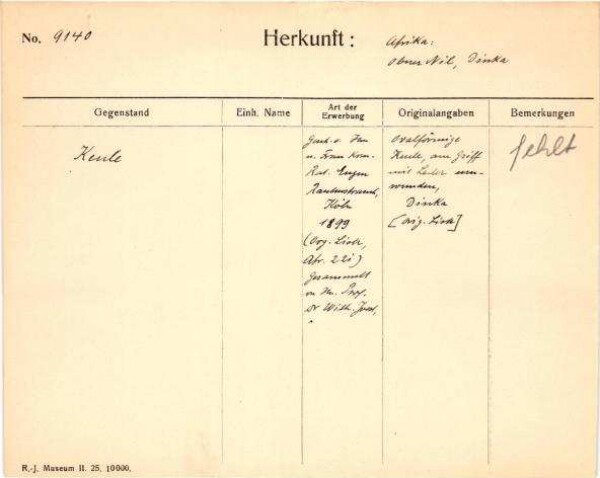 No. 9140
Herkunft:
Afrika:
Oberer Nil, Dinka
Gegenstand
Einh. Name
Art der
Erwerbung
Originalangaben
Bemerkungen
Keule
u. Frau Kom.
Rat. Eugen
Rautenstrauch,
Köln
1899
(Org. Liste,
Afr. 22i)
Gesammelt
v. Hn. Prof.
Dr Wilh. Joest.
Ovalförmige
Keule, am Griff
mit Leder um-
wunden,
Dinka
[Orig. Liste]
fehlt
R.-J. Museum II. 25. 10000.